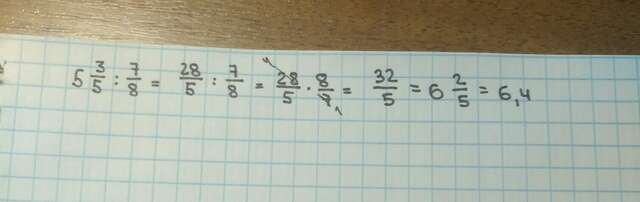 5 3/5 : 7/8 = 28/5 : 7/8 = 28/5 · 8/7 = 32/5 = 6 2/5 = 6,4